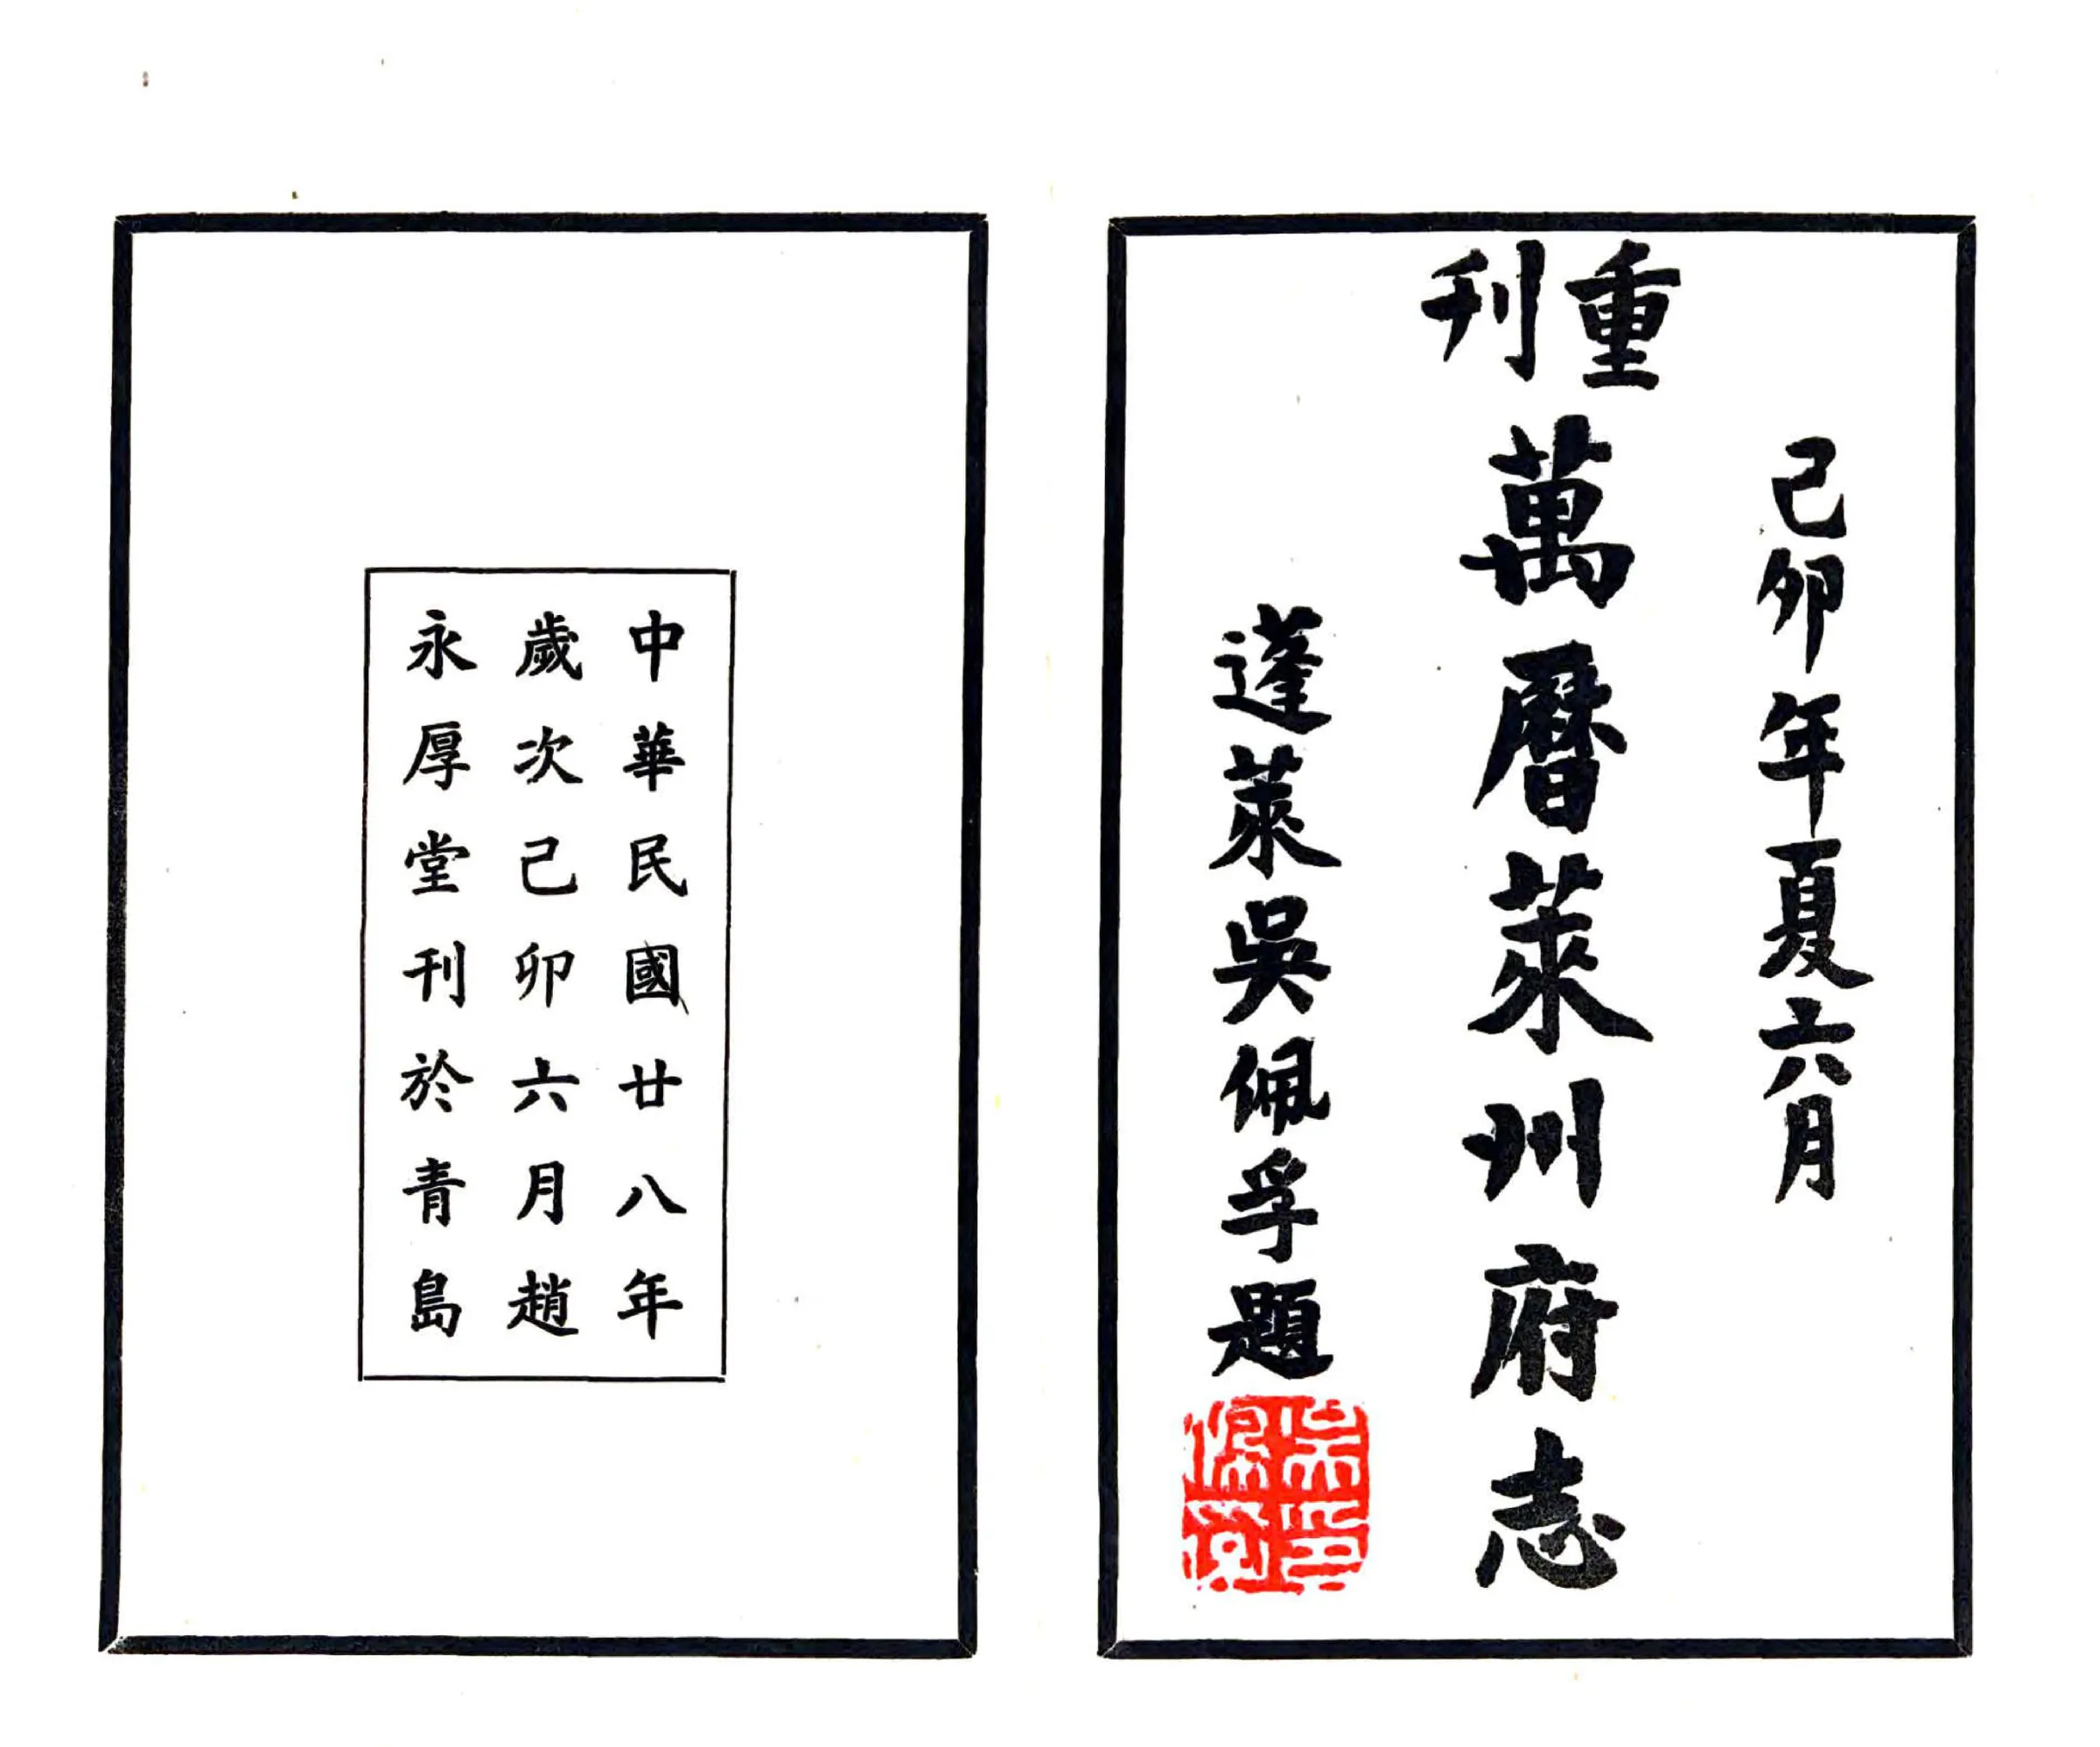 己卯年夏六月
重刊
萬曆萊州府志
蓬萊吳佩孚題
中華民國廿八年
歲次己卯六月趙
永厚堂刊於青島